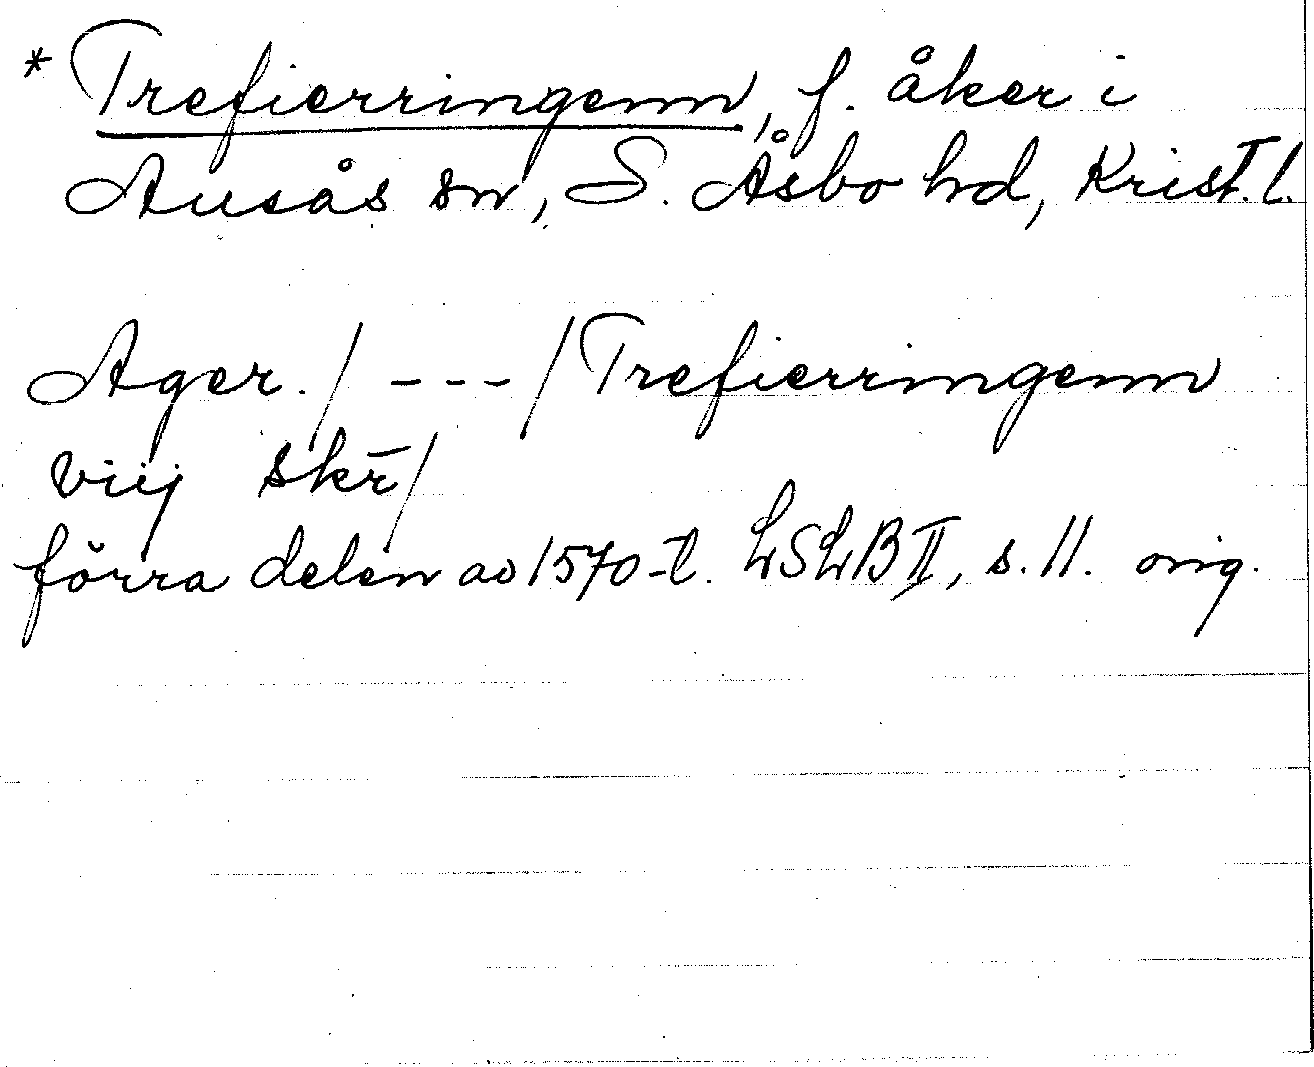 * Trefierringenn, f. åker i
Ausås sn, S. Åsbo hd, Krist. l.
Ager. / - - - / Trefierringenn
viij skr̄ /
förra delen av 1570-t. LSLB II, s. 11. orig.